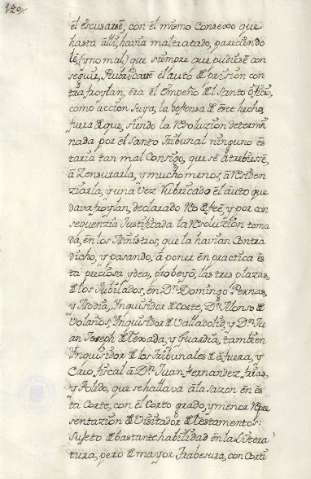 129
el escusarse, con el mismo Consexo que
hasta alli, havia maltratado, pareciendo
le, (y no mal) que siempre que pudiese con
seguir, Rubricase el auto de prision con
tra froylan, era el empeño del Santo oficio,
como accion suya, la defensa de este hecho,
fuera de que, siendo la Resoluzion determi
nada por el Santo Tribunal ninguno es
taria tan mal Consigo, que se atrebiese,
a Zensurarla, y mucho menos, a Residen
ziarla, y una vez Rubricado el auto que
dava froylan, declarado Reo de fee, y por con
sequenzia Justificada la Resoluzion toma
da, en los Ministros, que la havian Contra
dicho, y pasando, a poner en practica es
ta preciosa ydea, probeyó, las tres plazas
de los Jubilados, en Dn. Domingo Pernas,
y Andia, Inquisidor de Corte, Dn. Alonso de
Volaños, Inquisidor de Valladolid, y Dn. Ju
an Joseph de Texada, y Guardia, tambien
Inquisidor de los tribunales de afuera, y
Fiscal a Dn. Juan fernandez frias,
y Toledo, que se hallava a la sazon en es
ta Corte, con el Corto grado, y menor Repre
sentazion de Visitador de testamentos:
Sujeto de bastante habilidad en la Litera
tura, pero de mayor Trabesura, con Corti